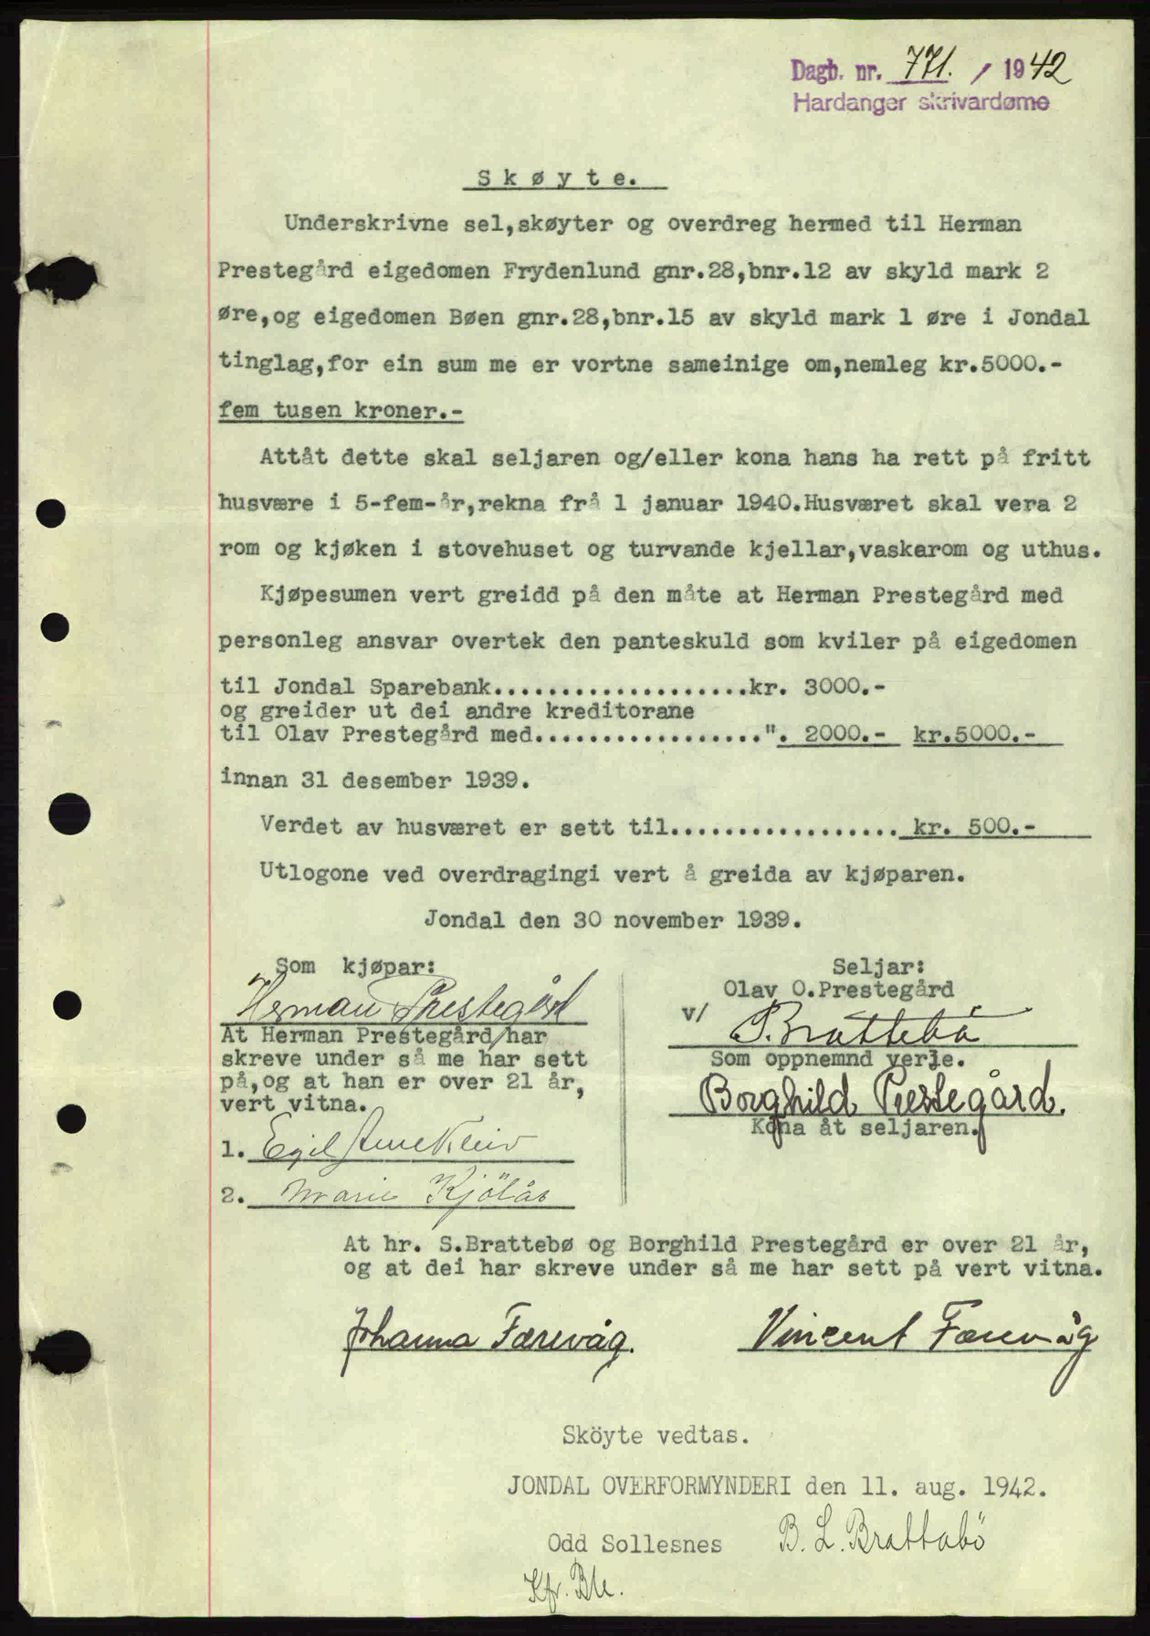 Dagb. nr. 771. / 1942
Hardanger skrivardøme
Skøyte.
Underskrivne sel,skøyter og overdreg hermed til Herman
Prestegård eigedomen Frydenlund gnr.28,bnr.12 av skyld mark 2
øre,og eigedomen Bøen gnr.28,bnr.15 av skyld mark 1 øre i Jondal
tinglag,for ein sum me er vortne sameinige om,nemleg kr.5000.-
fem tusen kroner.-
Attåt dette skal seljaren og/eller kona hans ha rett på fritt
husvære i 5-fem-år,rekna frå 1 januar 1940.Husværet skal vera 2
rom og kjøken i stovehuset og turvande kjellar,vaskarom og uthus.
Kjøpesumen vert greidd på den måte at Herman Prestegård med
personleg ansvar overtek den panteskuld som kviler på eigedomen
til Jondal Sparebank...................kr. 3000.-
og greider ut dei andre kreditorane
til Olav Prestegård med.................". 2000.- kr.5000.-
innan 31 desember 1939.
Verdet av husværet er sett til................. kr. 500.-
Utlogone ved overdragingi vert å greida av kjøparen.
Jondal den 30 november 1939.
Som kjøpar:
Herman Prestegård
At Herman Prestegård/har
skreve under så me har sett
på,og at han er over 21 år,
vert vitna.
1. Egil
2. Marie Kjölås
Seljar:
Olav O.Prestegård
v/ S. Brattebø
Som oppnemnd verje.
Borghild Prestegård.
Kona åt seljaren.
At hr. S.Brattebø og Borghild Prestegård er over 21 år,
og at dei har skreve under så me har sett på vert vitna.
Johanna Færevåg. Vincent Færevåg
Sköyte vedtas.
JONDAL OVERFORMYNDERI den 11. aug. 1942.
Odd Sollesnes B. L. Brattabö
Kfr.